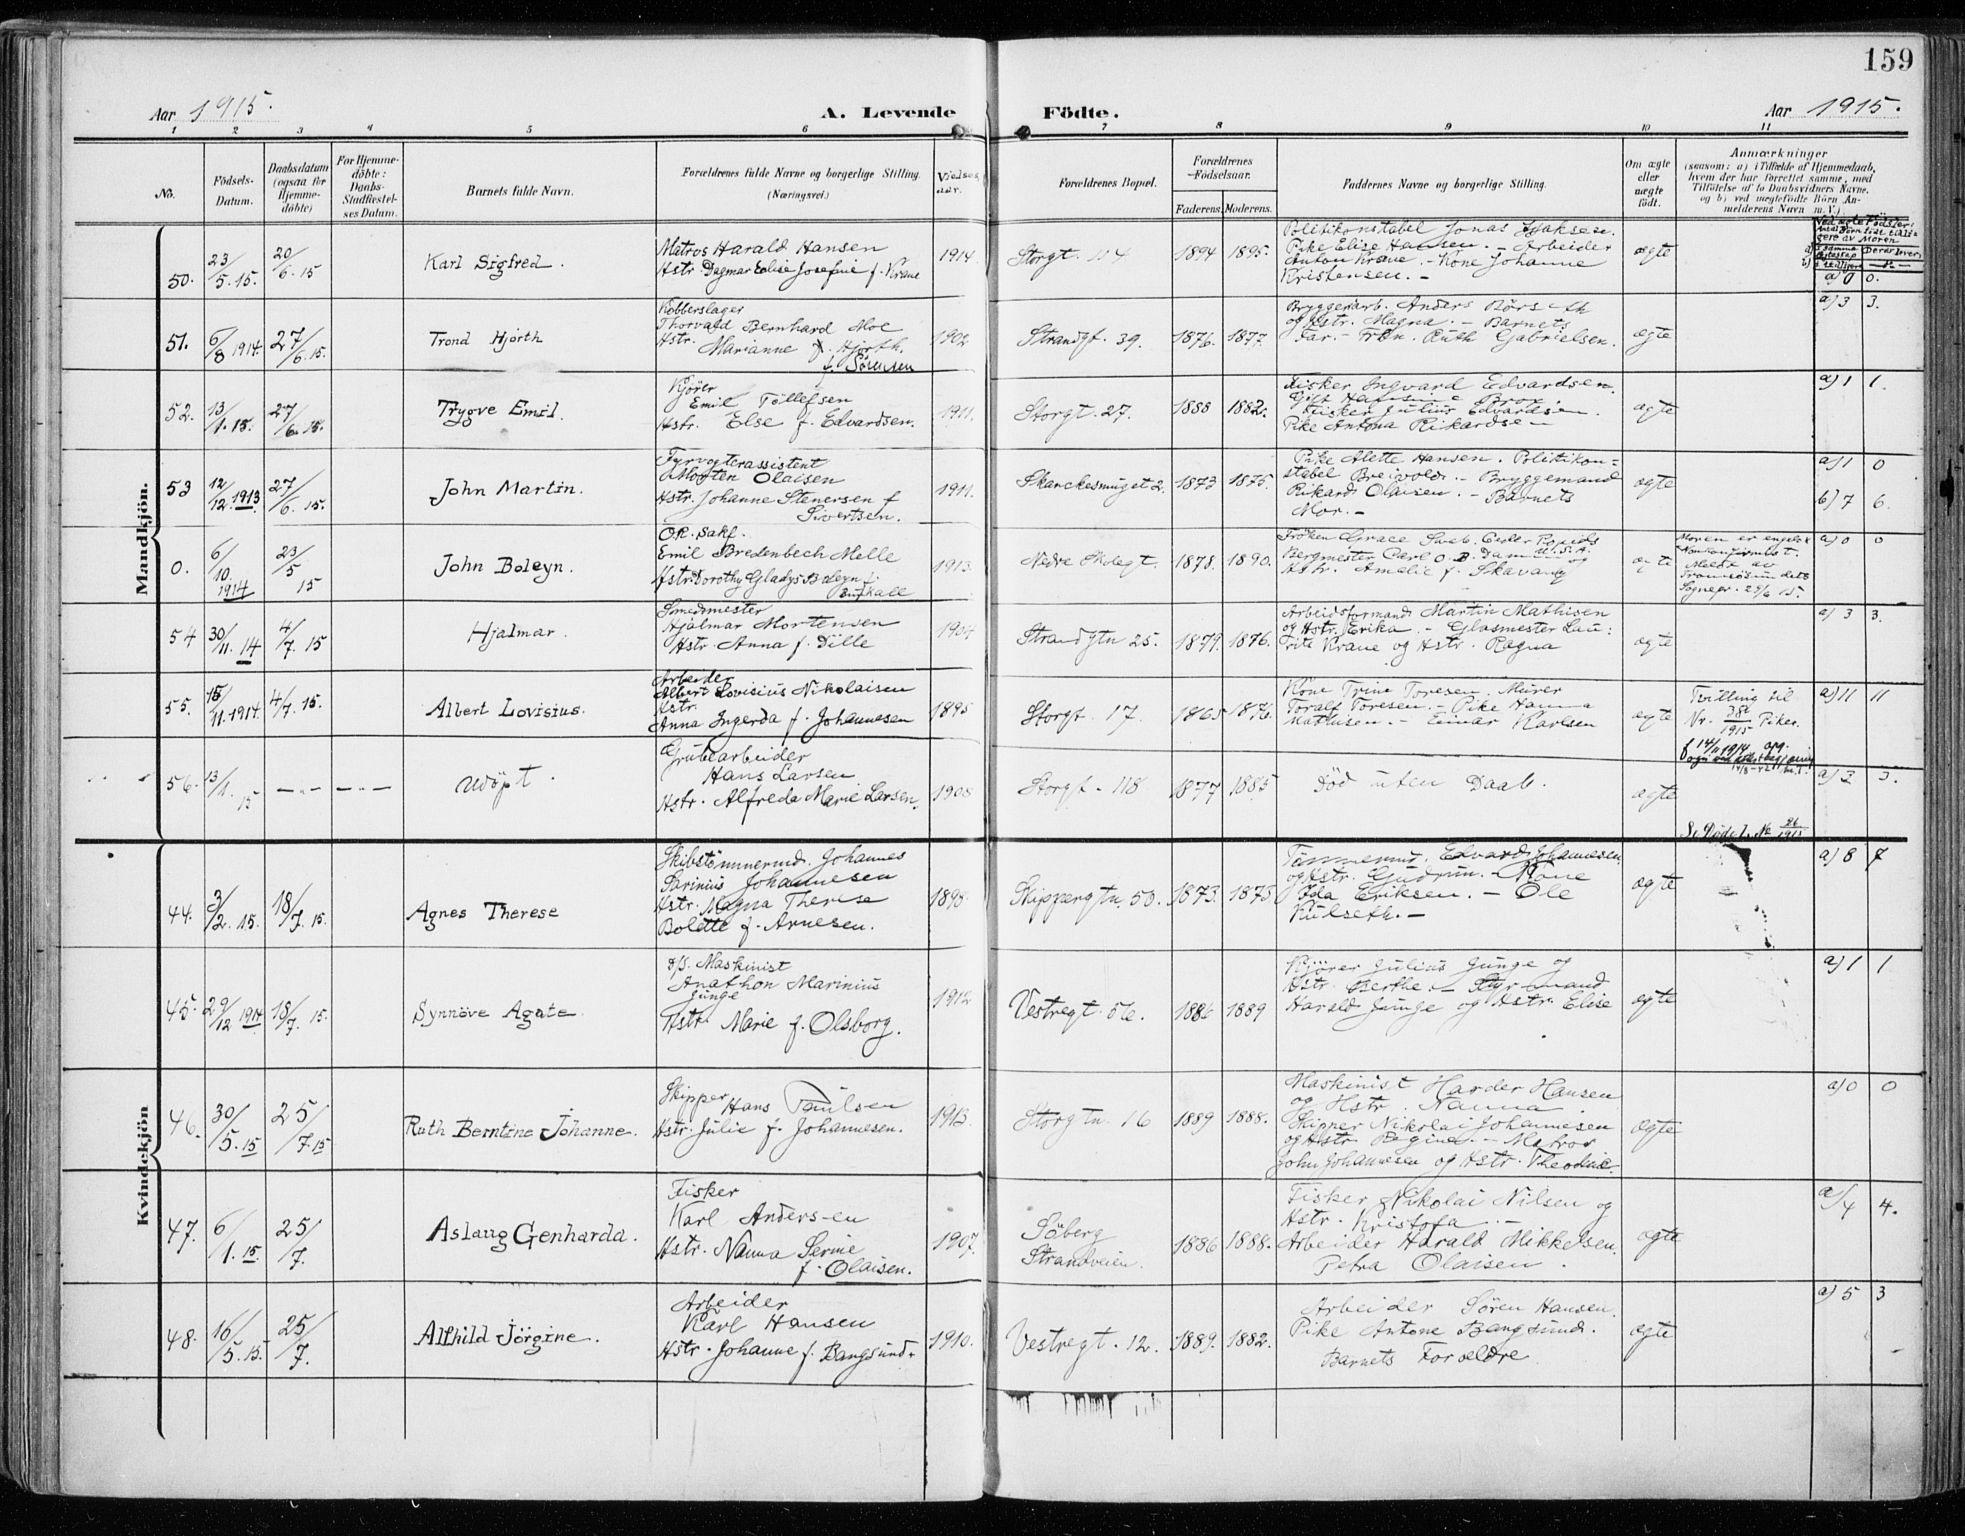 159
Aar 1915. A. Levende Födte. Aar 1915.
1 2 3 4 5 6 7 8 9 10 11
No.
Födsels-Datum.
Daabsdatum (ogsaa for Hjemme-döbte)
For Hjemme-döbte: Daabs-Stadfæstel-ses Datum.
Barnets fulde Navn.
Forældrenes fulde Navne og borgerlige Stilling. (Næringsvei.)
Vielses aar.
Forældrenes Bopæl.
Forældrenes Födselsaar.
Faderens. Moderens.
Faddernes Navne og borgerlige Stilling.
Om ægte eller uægte födt.
Anmærkninger
(saasom: a) i Tilfælde af Hjemmedaab,
hvem der har forrettet samme, med
Tilföielse af to Daabsvidners Navne.
og b) ved uægtefödte Börn An-
melderens Navn m. V.)
Mandkjön.
50. 23/5.15. 20/6.15 Karl Sigfred.
Matros Harald Hansen
Hstr. Dagmar Elise Josefine f. Krane
1914 Storgt. 114 1894 1895.
Politikonstabel Jonas
Pike Elise Hansen. - Arbeider
Anton Krane. - Kone Johanne
Kristensen. -
ægte
a) 0 0.
51. 6/8 1914. 27/6.15. Trond Hjorth
Kobberslager
Thorvald Bernhard Moe
Hstr. Marianne f. Hjorth.
f. Sörensen
1902 Strandgt. 39. 1876. 1877.
Bryggeriarb. Anders
og Hstr. Magna. - Barnets
Far. - Frkn. Ruth Gabrielsen.
ægte a) 3 3.
52. 13/1.15. 27/6.15. Trygve Emil.
Kjörer
Emil Töllefsen
Hstr. Else f. Edvardsen.
1911. Storgt. 27. 1888 1882.
Fisker Ingvard Edvardsen.
Gift
Fisker Julius Edvardsen.
Pike Antona Rikardsen
ægte a) 1 1.
53 12/12.1913. 27/6.15. John Martin.
Fyrvogterassistent
Morten Olaisen
Hstr. Johanne Stenersen f.
Sivertsen.
1911. Skanckesmuget 2. 1873 1875.
Pike Alette Hansen. Politikon=
stabel Breivold. - Bryggemand
Rikard Olaisen. - Barnets
Mor. -
ægte a) 1 0
b) 7 6.
0. 6/10. 1914 23/5 15 John Boleyn.
O.R. Sakf.
Emil Bredenbech Melle
Hstr. Dorothy Gladys Boleyn f.
1913. Nedre Skolegt. 1878. 1890.
Fröken Grace Cedar Rapids
Bergmester Carl O. B. Damm U.S.A. og
Hstr. Amelie f. Skavang
ægte
Moren er engelsk
Meldt av
Tromsösundets
Sognepr. 29/6 15.
a) 0 0
54 30/11.14 4/7.15 Hjalmar.
Smedmester
Hjalmar Mortensen
Hstr. Anna f. Dille
1904 Strandgtn 25. 1879. 1876.
Arbeidsformand Martin Mathisen
og Hstr. Erika. - Glasmester Lau=
ritz Krane og Hstr. Regna
ægte a) 3 3.
55. 15/11.1914. 4/7.15. Albert Lovisius.
Arbeider
Albert Lovisius Nikolaisen
Hstr.
Anna Ingerda f. Johannesen
1895 Storgt. 17. 1865 1876.
Kone Trine Toresen. Murer
Toralf Toresen. - Pike Hanna
Mathisen. - Einar Karlsen
ægte
Tvilling til
Nr. 38 Piker.
1915
a) 11 11
56. 13/1.15 - - - - Udöpt.
Grubearbeider
Hans Larsen
Hstr. Alfreda Marie Larsen.
1908 Storgt. 118 1877 1885
Död uten Daab.
ægte
Se Döde L. No 26/1915
a) 3 3.
Kvindekjön
44. 3/2.15. 18/7.15. Agnes Therese
Skibstömmermd. Johannes
Sarinius Johannesen
Hstr. Magna Therese
Bolette f. Arnesen.
1898. Skippergtn. 50. 1873. 1875
Tömmermd. Edvard Johannesen
og Hstr. Gudrun. - Kone
Ida Eriksen. - Ole
Kulseth. -
ægte a) 8 7
45. 29/12 1914 18/7.15. Synnöve Agate.
d/s. Maskinist
Anathon Marinius
Junge
Hstr. Marie f. Olsborg.
1912 Vestregt. 56. 1886 1889
Kjörer Julius Junge og
Hstr. Berthe. - Styrmand
Harald Junge og Hstr. Elise
ægte a) 1 1
46. 30/5.15 25/7.15 Ruth Berntine Johanne.
Skipper
Hans Paulsen
Hstr. Julie f. Johannesen.
1913. Storgtn. 16 1889 1888.
Maskinist Harder Hansen
og Hstr. Nanna.
Skipper Nikolai Johannesen
og Hstr. Regine. - Matros
John Johannesen og Hstr. Theodine.
ægte a) 0 0
47. 6/1.15. 25/7. Aslaug Genharda.
Fisker
Karl Andersen
Hstr. Nanna Serine
f. Olaisen.
1907. Söberg
Strandveien.
1886 1888.
Fisker Nikolai Nilsen og
Hstr. Kristofa. -
Arbeider Harald Mikkelsen.
Petra Olaisen.
ægte a) 4 4.
48. 16/5.15. 25/7. Alfhild Jörgine.
Arbeider
Karl Hansen
Hstr. Johanne f. Bangsund.
1910. Vestregt. 12. 1889. 1882.
Arbeider Sören Hansen.
Pike Antone Bangsund.
Barnets Forældre
ægte a) 5 3